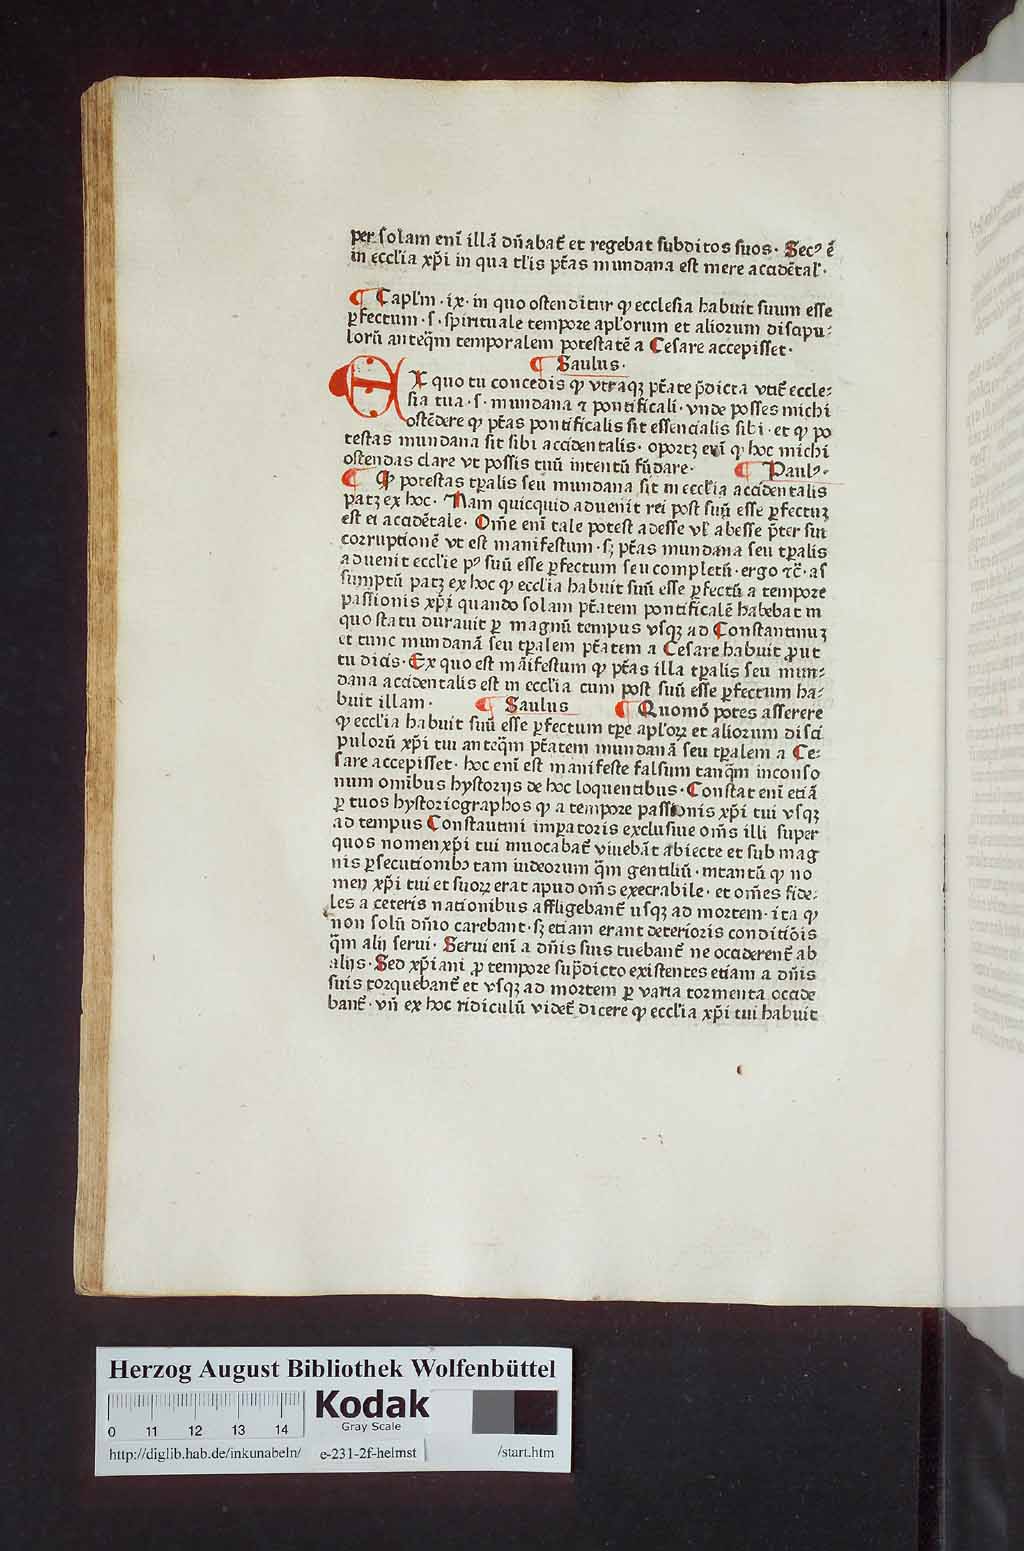 per solam enī illā dn̄abat̄ et regebat subditos suos · Secꝰ ē
in eccl'ia xp̄i in qua tl'is ptās mundana est mere accidētal' ·
¶ Capl'm · ix · in quo ostenditur ꝙ ecclesia habuit suum esse
ꝑfectum · s · spirituale tempore apl'orum et aliorum discipu⸗
lorū anteq̄m temporalem potestatē a Cesare accepisset ·
¶ Saulus ·
EX quo tu concedis ꝙ vtraqꝫ ptāte p̄dicta vtit̄ eccle⸗
sia tua · s · mundana ⁊ pontificali · vnde posses michi
ostēdere ꝙ ptās pontificalis sit essencialis sibi · et ꝙ po
testas mundana sit sibi accidentalis · oportꝫ eni ꝙ hoc michi
ostendas clare vt possis tuū intentū fūdare · ¶ Paulꝰ ·
¶ Ꝙ potestas tꝑalis seu mundana sit in eccl'ia accidentalis
patꝫ ex hoc · Nam quicquid aduenit rei post suū esse ꝑfectuꝫ
est ei accidētale · Om̄e enī tale potest adesse vl' abesse p̄ter sui
corruptionē vt est manifestum · sꝫ ptās mundana seu tꝑalis
aduenit eccl'ie pꝰ suū esse ꝑfectum seu completū · ergo ⁊c̄ · as
sumptū patꝫ ex hoc ꝙ eccl'ia habuit suū esse ꝑfectū a tempore
passionis xp̄i quando solam ptātem pontificalē habebat in
quo statu durauit ꝑ magnū tempus vsqꝫ ad Constantinuꝫ
et tunc mundanā seu tꝑalem ptātem a Cesare habuit ꝓut
tu dicis · Ex quo est māifestum ꝙ ptās illa tꝑalis seu mun⸗
dana accidentalis est in eccl'ia cum post suū esse ꝑfectum ha⸗
buit illam · ¶ Saulus ¶ Quomō potes asserere
ꝙ eccl'ia habuit suū esse ꝑfectum tꝑe apl'oꝝ et aliorum disci
pulorū xp̄i tui anteq̄m ptātem mundanā seu tꝑalem a Ce⸗
sare accepisset · hoc enī est manifeste falsum tanq̄m inconso
num omībus hystorijs de hoc loquentibus · Constat enī etiā
ꝑ tuos hystoriographos ꝙ a tempore passionis xp̄i tui vsqꝫ
ad tempus Constantini imꝑatoris exclusiue om̄s illi super
quos nomen xp̄i tui inuocabat̄ viuebāt abiecte et sub mag
nis ꝑsecutionibꝰ tam iudeorum q̄m gentiliū · intantū ꝙ no
men xp̄i tui et suoꝝ erat apud om̄s execrabile · et om̄es fide⸗
les a ceteris nationibus affligebant̄ usqꝫ ad mortem · ita ꝙ
non solū dn̄io carebant · sꝫ etiam erant deterioris conditiōis
q̄m alij serui · Serui enī a dn̄is suis tuebant̄ ne occiderent̄ ab
alijs · Sed xp̄iani ꝓ tempore sup̄dicto existentes etiam a dn̄is
suis torquebant̄ et vsqꝫ ad mortem ꝑ varia tormenta occide
bant̄ · vn̄ ex hoc ridiculū videt̄ dicere ꝙ eccl'ia xp̄i tui habuit
Herzog August Bibliothek Wolfenbüttel
0 11 12 13 14
Kodak
Gray Scale
http://diglib.hab.de/inkunabeln/ e-231-2f-helmst /start.htm